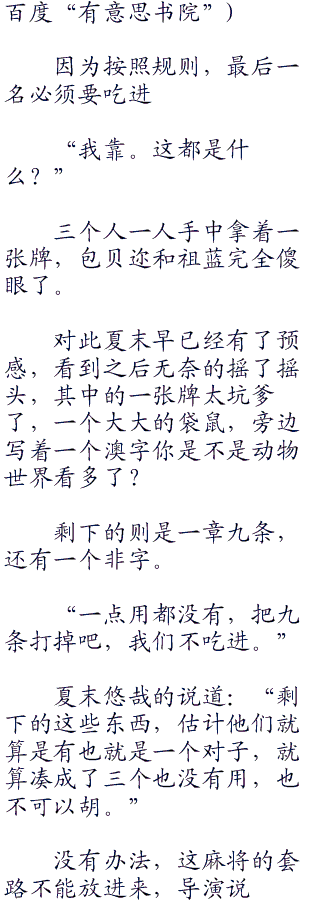 百度“有意思书院”)
因为按照规则，最后一
名必须要吃进
“我靠。这都是什
么？”
三个人一人手中拿着一
张牌，包贝迩和祖蓝完全傻
眼了。
对此夏末早已经有了预
感，看到之后无奈的摇了摇
头，其中的一张牌太坑爹
了，一个大大的袋鼠，旁边
写着一个澳字你是不是动物
世界看多了？
剩下的则是一章九条，
还有一个非字。
“一点用都没有，把九
条打掉吧，我们不吃进。”
夏末悠哉的说道：“剩
下的这些东西，估计他们就
算是有也就是一个对子，就
算凑成了三个也没有用，也
不可以胡。”
没有办法，这麻将的套
路不能放进来，导演说